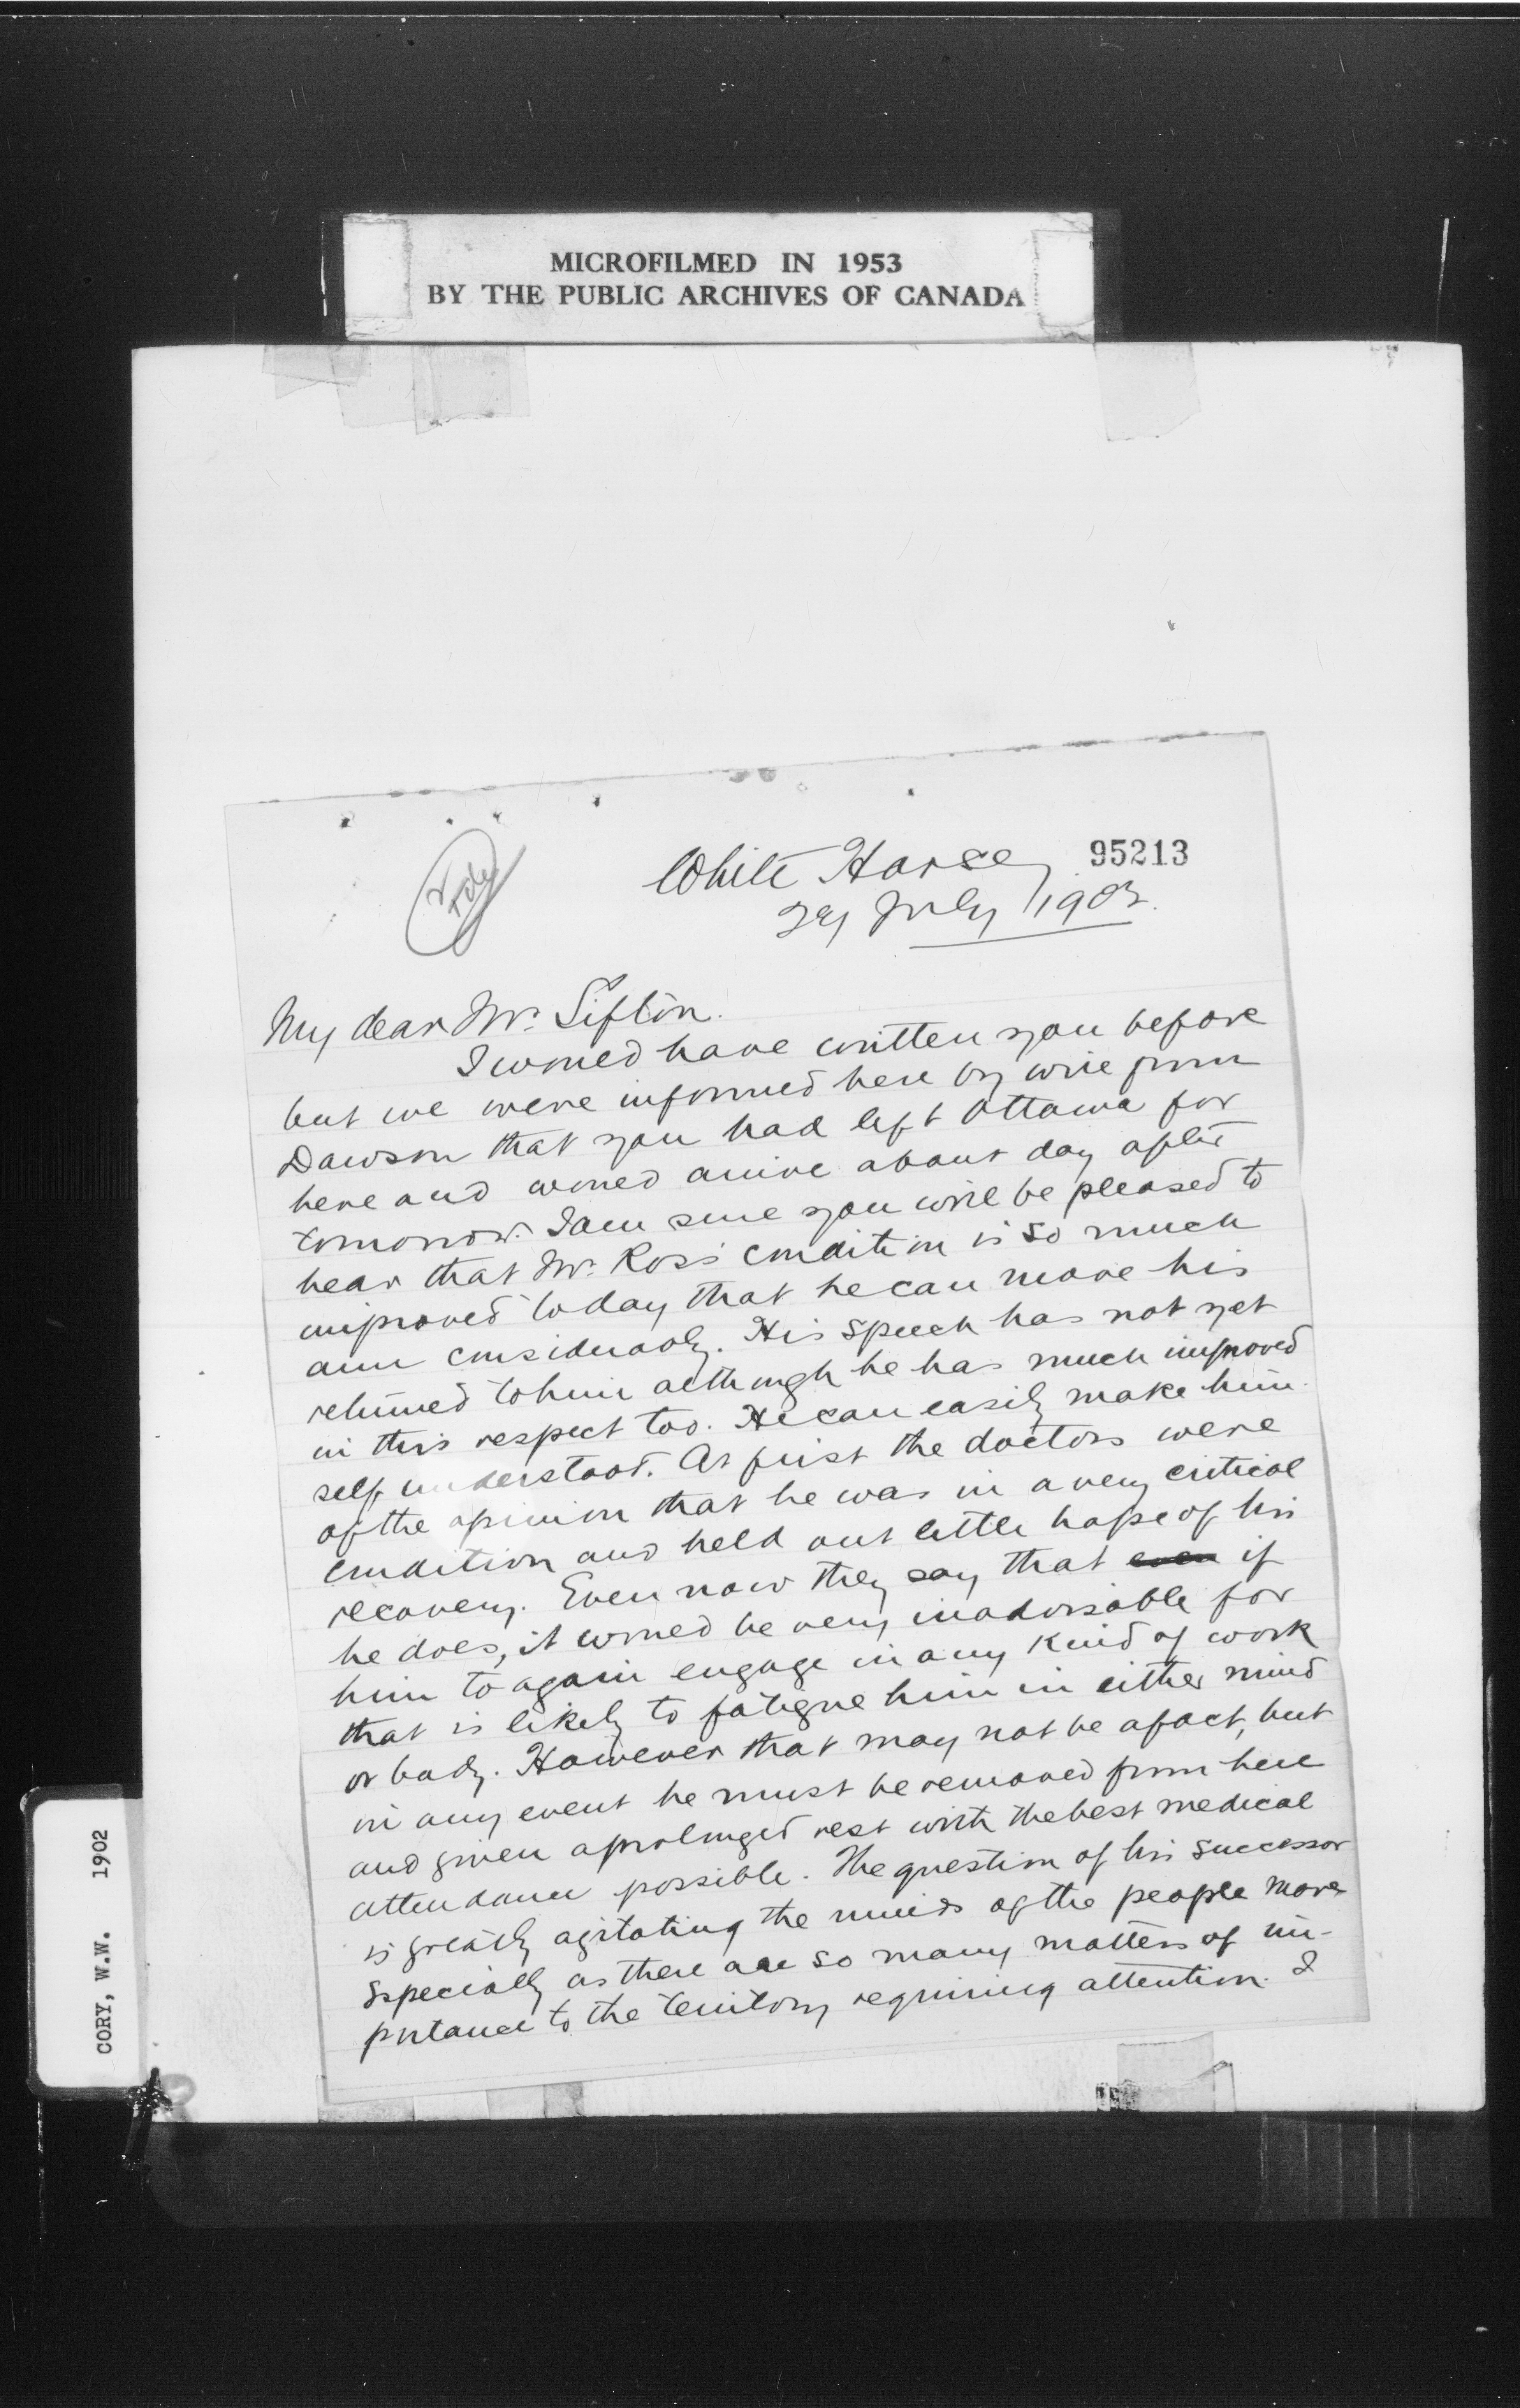 MICROFILMED IN 1953
BY THE PUBLIC ARCHIVES OF CANADA
95213
White Horse,
29 July 1902.
My dear Mr. Sifton.
I would have written you before
but we were informed here by wire from
Dawson that you had left Ottawa for
here and would arrive about day after
tomorrow. I am sure you will be pleased to
hear that Mr. Ross' condition is so much
improved today that he can move his
arm considerably. His speech has not yet
returned to him although he has much improved
in this respect too. He can easily make him-
self understood. At first the doctors were
of the opinion that he was in a very critical
condition and held out little hope of his
recovery. Even now they say that even if
he does, it would be very inadvisable for
him to again engage in any kind of work
that is likely to fatigue him in either mind
or body. However that may not be a fact, but
in any event he must be removed from here
and given a prolonged rest with the best medical
attendance possible. The question of his successor
is greatly agitating the minds of the people more
specially as there are so many matters of im-
portance to the territory requiring attention. I
CORY, W.W. 1902